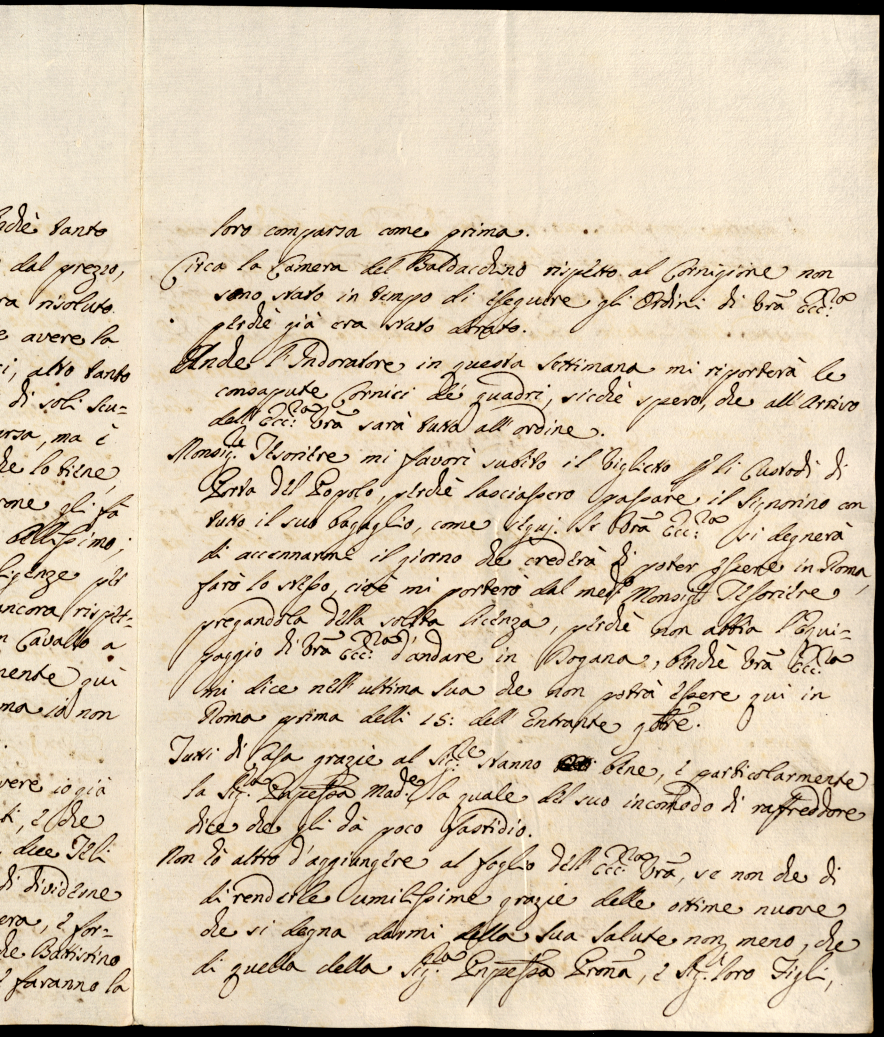 ndiè tanto
dal prezzo,
ra risoluto
e avere la
ci, altro tanto
di soli Scu-
arsa, ma è
he lo tiene,
rone gli fà
bellissimo;
ligenze per
ancora rispet-
n Cavallo a
mente quì
ma io non
vere io già
ti, e che
dice Teli
di dividerne
era, e for-
he Battistino
e faranno la
loro comparsa come prima.
Circa la Camera del Baldacchino rispetto al Cornicione non
sono stato in tempo di eseguire gli Ordini di Vrã Ecc:za
perchè già era stato dorato.
Anche l'Indoratore in questa Settimana mi riporterà le
consapute Cornici de' quadri, sicchè spero, che all'Arrivo
dell'Ecc:za Vrã sarà tutto all'ordine.
Monsig:re Tesoriere mi favorì subito il biglietto p li Custodi di
Porta del Popolo, perchè lasciassero passare il Signorino con
tutto il suo bagaglio, come seguì. Se Vrã Ecc:za si degnerà
di accennarmi il giorno che crederà di poter essere in Roma,
farò lo stesso, cioè mi porterò dal medmo Monsigr Tesoriere
pregandola della solita licenza, perchè non abbia l'Equi-
paggio di Vrã Ecc:za d'andare in Dogana, benchè Vrã Ecc:za
mi dice nell'ultima sua che non potrà essere quì in
Roma prima delli 15: dell'Entrante gbre.
Tutti di Casa grazie al Sig:re stanno bene, e particolarmente
la Sig:ra Pnpessa Made, la quale del suo incomodo di raffreddore
dice che gli dà poco fastidio.
Non ò altro d'aggiungere al foglio dell'Ecc:za Vrã, se non che di
di renderle umilissime grazie delle ottime nuove
che si degna darmi della sua Salute non meno, che
di quella della Sig:ra Pnpessa Pronã, e Sig:ri loro Figli,